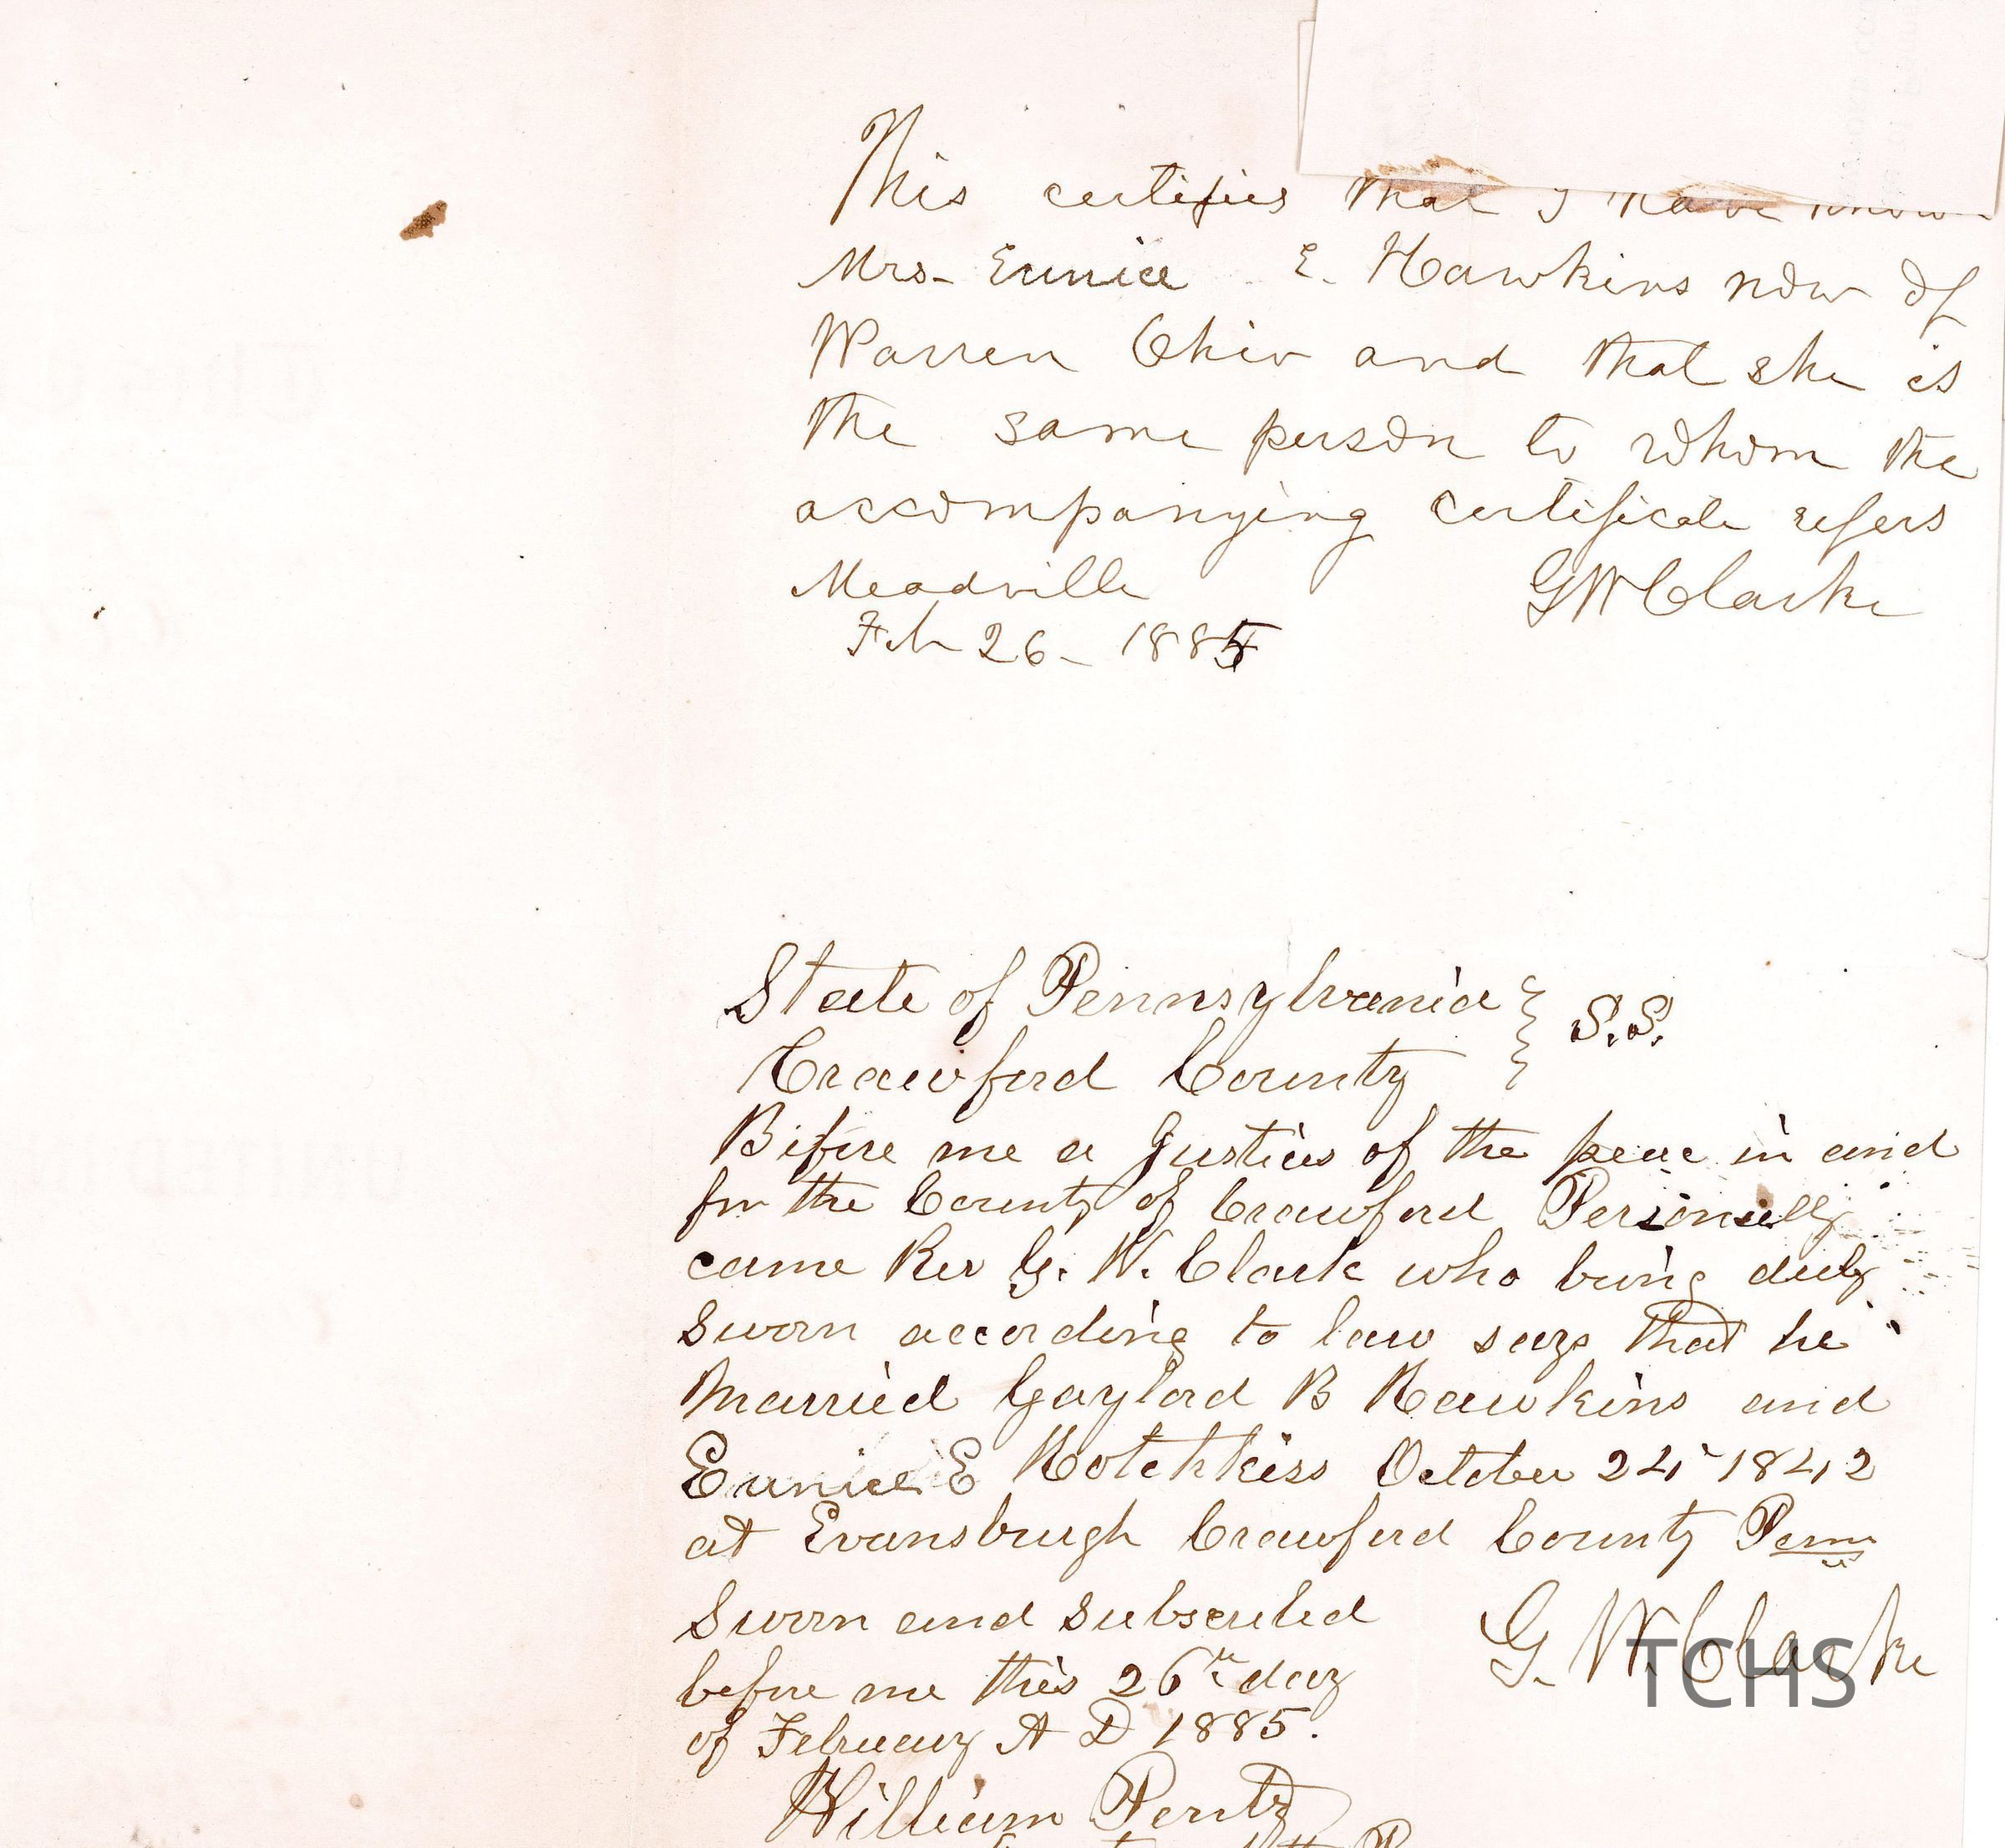 This certifies that I have know
Mrs. Eunice E. Hawkins now of
Warren Ohio and that she is
the same person to whom the
accompanying certificate refers
Meadville GW Clarke
Feb 26 - 1885
State of Pennsylvania } S.S.
Crawford County
Before me a Justice of the peace in and
for the County of Crawford Personally
came Rev G. W. Clark who being duly
sworn according to law says that he
Married Gaylord B Hawkins and
Eunice E Hotchkiss October 24 - 1842
at Evansburgh Crawford County Penn
Sworn and subscribed
before me this 26th day
of February A D 1885.
G. W. Clarke
TCHS
William Pentz